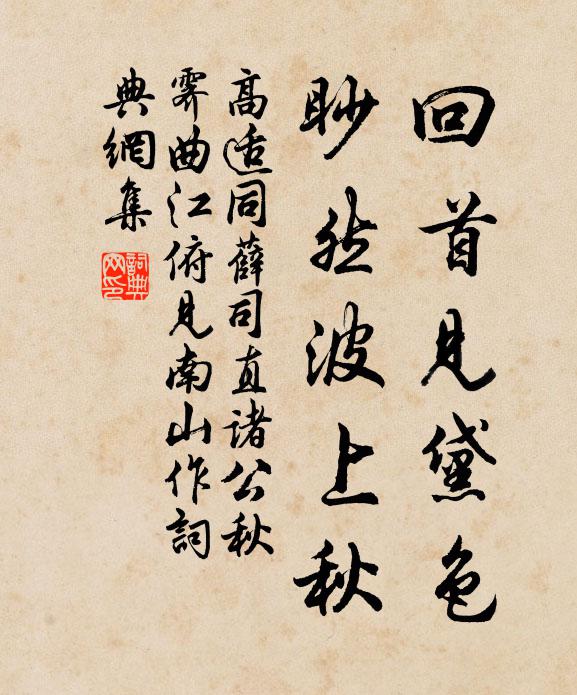 回首見黛色
眇然波上秋
高适同薛司直諸公秋
霽曲江俯見南山作詞
典網集
詞典網印